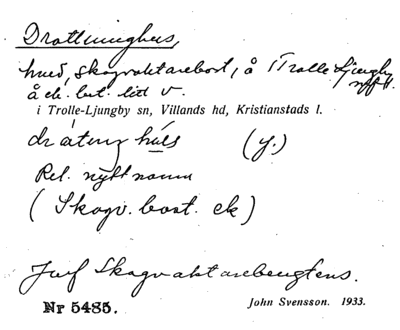 Drottninghus,
hmd, skogvaktarebost, å Trolle Ljungby
å ek. bat. litt v.
i Trolle-Ljungby sn, Villands hd, Kristianstads l.
hús (y.)
Rel. nytt namn
(Skogv. bost. ek)
Jmf Skogvaktarebengtens.
Nr 5485. John Svensson. 1933.